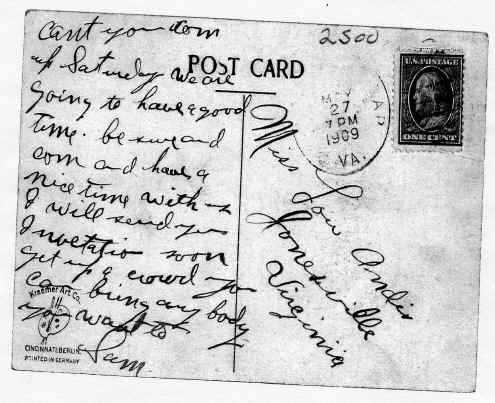 cant you com
up Saturday we are
going to have a good
time. be sure and
com and have a
nice time with us
I will send you
Invetation soon
get up a crowd you
can bring any body
you want to
Sam.
Kraemer Art Co.
CINCINNATI, BERLIN.
PRINTED IN GERMANY
2500
POST CARD
MAY
27
7 PM
1909
VA.
U.S. POSTAGE
ONE CENT
Miss Lou Andis
Jonesville
Virginia